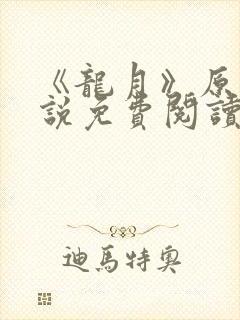 《龍月》原
說免費閱讀
迪馬特奧